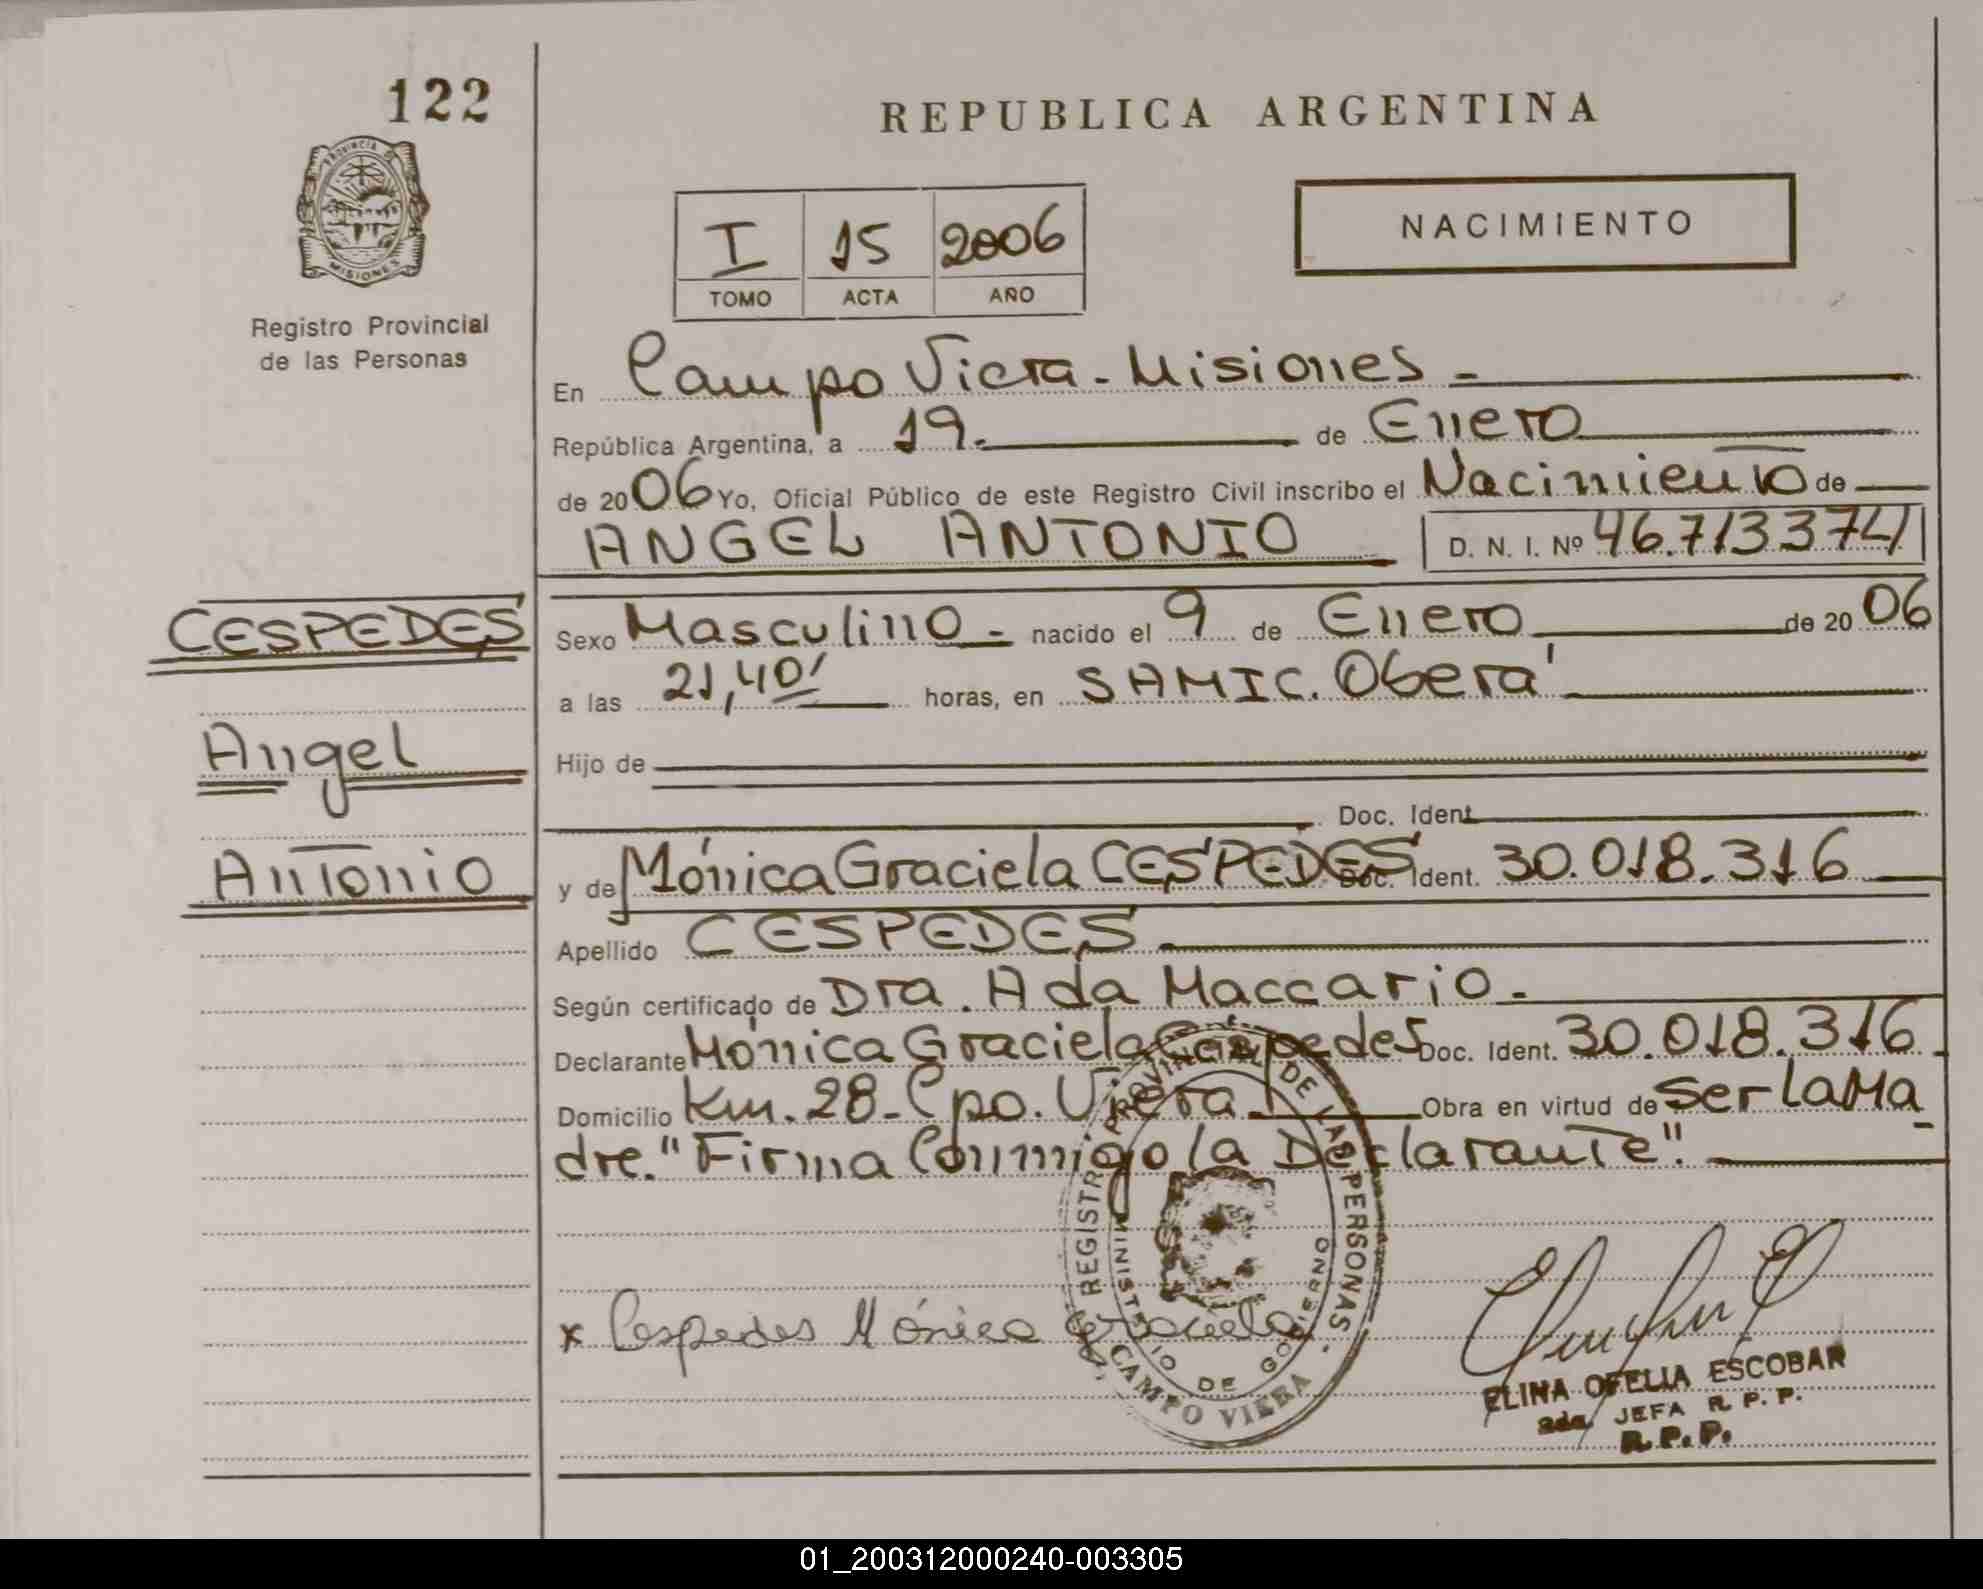 122
PROVINCIA DE
MISIONES
Registro Provincial
de las Personas
REPUBLICA ARGENTINA
I 15 2006
TOMO ACTA AÑO
NACIMIENTO
En Campo Viera - Misiones -
República Argentina, a 19. de Enero
de 2006 Yo, Oficial Público de este Registro Civil inscribo el Nacimiento de
ANGEL ANTONIO D. N. I. Nº 46.713374
CESPEDES
Angel
Antonio
Sexo Masculino - nacido el 9 de Enero de 2006
a las 21,40' horas, en SAMIC. Oberá
Hijo de
Doc. Ident.
y de Mónica Graciela CESPEDES Doc. Ident. 30.018.316
Apellido CESPEDES
Según certificado de Dra. Ada Maccario -
Declarante Mónica Graciela Cespedes Doc. Ident. 30.018.316
Domicilio Km. 28 - Cpo. Viera Obra en virtud de ser la Ma
dre. "Firma Conmigo la Declarante".
REGISTRO PROVINCIAL DE LAS PERSONAS -
MINISTERIO DE GOBIERNO
CAMPO VIERA
x Cespedes Mónica Graciela
ELINA OFELIA ESCOBAR
2da. JEFA R. P. P.
R. P. P.
01_200312000240-003305